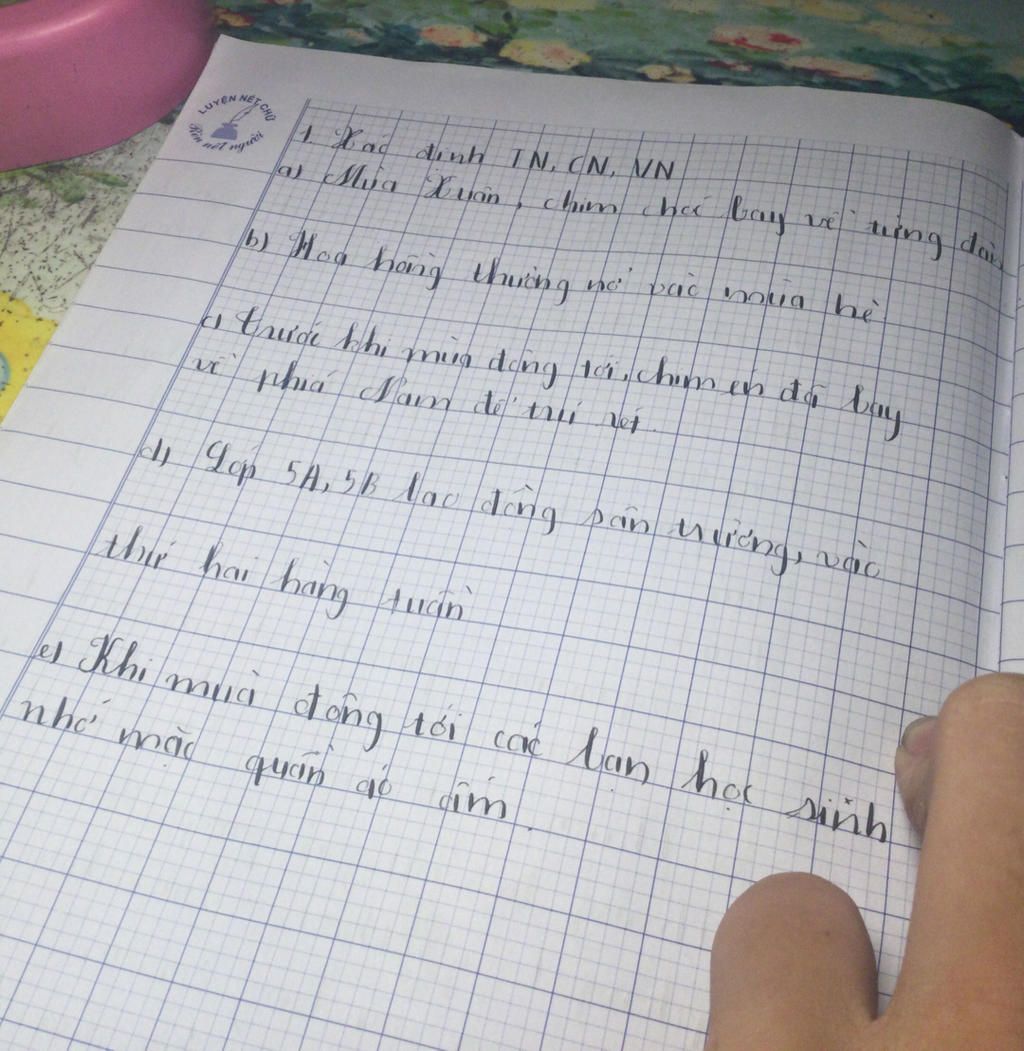 LUYỆN NÉT CHỮ
Rèn nết người
1. Xác định TN, CN, VN
a) Mùa Xuân, chim chóc bay về từng đàn.
b) Hoa hồng thường nở vào mùa hè
c) trước khi mùa đông tới, chim én đã bay
về phía Nam để trú rét.
d) Lớp 5A, 5B lao động sân trường, vào
thứ hai hàng tuần
e) Khi mùa đông tới các bạn học sinh
nhớ mặc quần áo ấm.